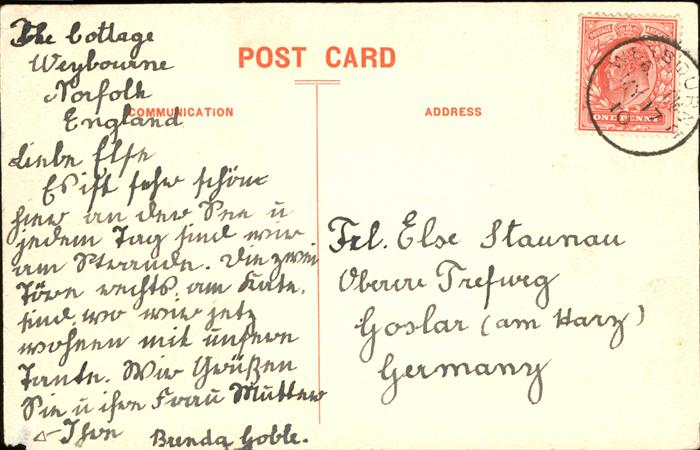 The Cottage
Weybourne
Norfolk
England
POST CARD
COMMUNICATION
ADDRESS
ONE PENNY
Liebe Else
Es ist sehr schön
hier an der See u
jedem Tag sind wir
am Strande. Die zwei
Töre rechts am
sind wo wir jetz
wohnen mit unsere
Tante. Wir Grüßen
Sie u ihre Frau Mutter
Ihre Brenda Goble.
Frl. Else Staunau
Obere
Goslar (am Harz)
Germany